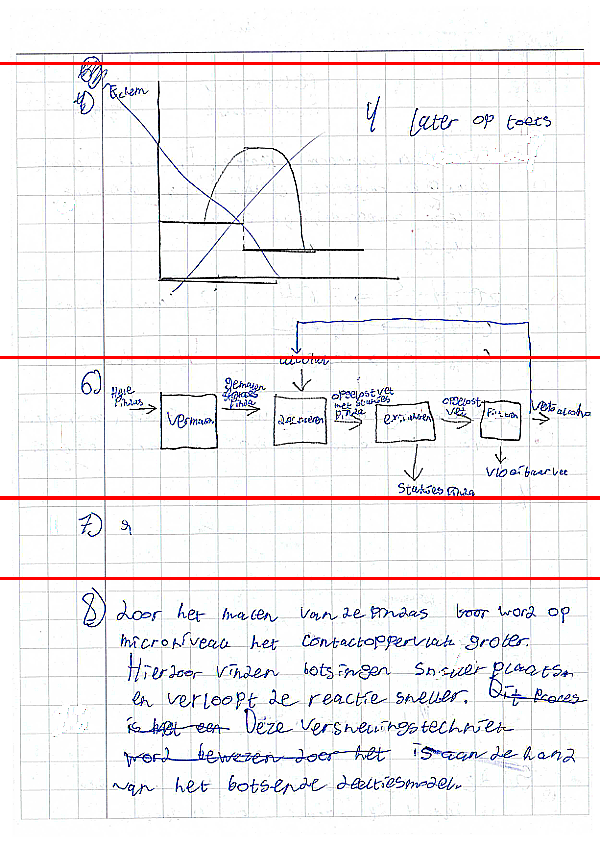 4)
Echem
4 Later op toets
6)
Hele
Pindas
Vermalen
gemalen
Pinda
opgelost vet
met stukjes
pinda
opgelost
vet
Filtreren
Stukjes Pinda
7) 9
8) door het malen van de Pindas word op
microniveau het contactoppervlak groter.
Hierdoor vinden botsingen sneller plaats
en verloopt de reactie sneller. Dit Proces
is het een Deze Versnellingstechniek
word bewezen door het is aan de hand
van het botsende deeltjesmodel.